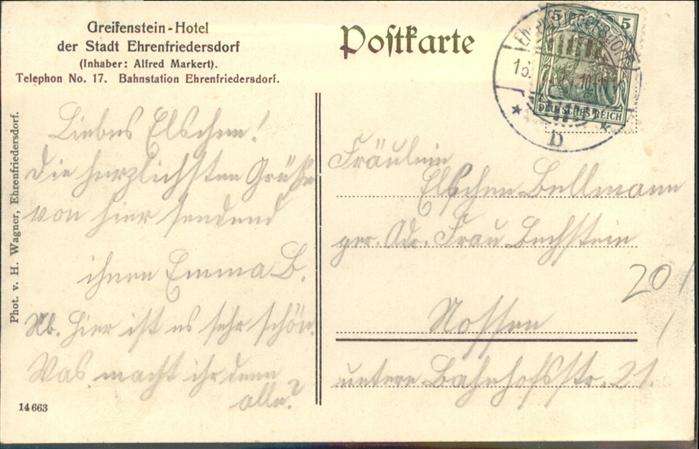 Greifenstein-Hotel
der Stadt Ehrenfriedersdorf
(Inhaber: Alfred Markert).
Telephon No. 17. Bahnstation Ehrenfriedersdorf.
Postkarte
5 5
DEUTSCHES REICH
b
Liebes Elschen!
Die herzlichsten Grüße
von hier sendend
ihnen Emma B.
Nb. Hier ist es sehr schön.
Was macht ihr denn
alle?
Fräulein
Elschen Bellmann
per. Adr. Frau Bechstein
Nossen
untere Bahnhofsstr. 21.
20
Phot. v. H. Wagner, Ehrenfriedersdorf.
14663